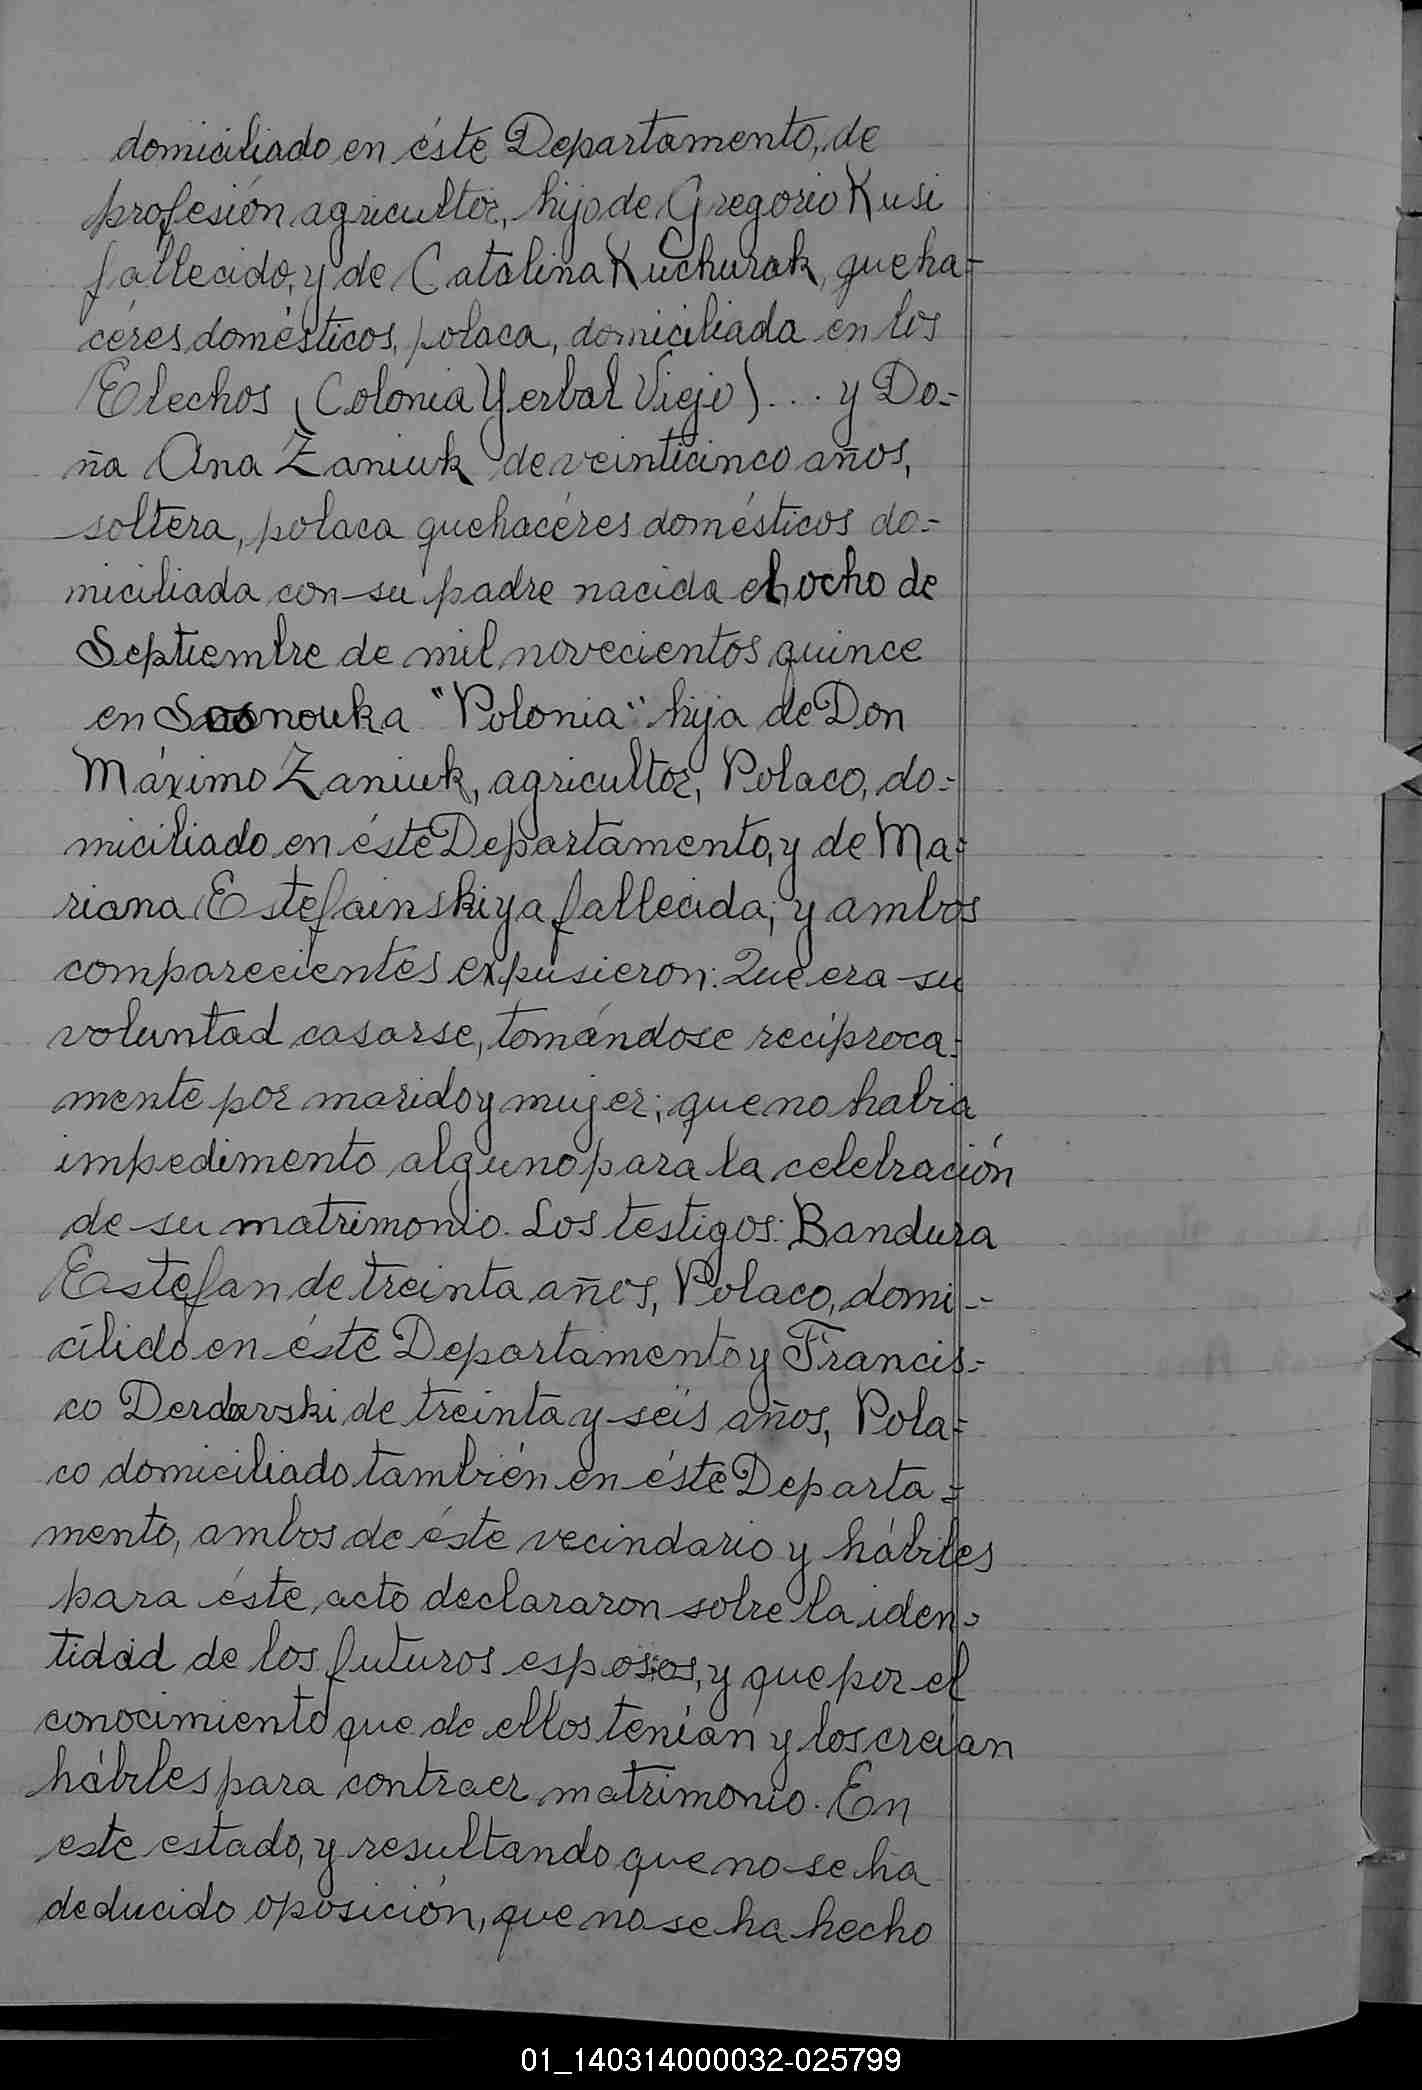 domiciliado en éste Departamento, de
profesión agricultor, hijo de Gregorio Kusi
fallecido, y de Catalina Kuchurak, queha=
céres domésticos, polaca, domiciliada en los
Elechos (Colónia Yerbal Viejo) ... y Do=
ña Ana Zaniuk de veinticinco años,
soltera, polaca quehacéres domésticos do=
miciliada con su padre nacida el ocho de
Septiembre de mil novecientos quince
en "Polonia" hija de Don
Máximo Zaniuk, agricultor, Polaco, do=
miciliado en éste Departamento, y de Ma=
riana Estefainski ya fallecida; y ambos
comparecientes expusieron: Que era su
voluntad casarse, tomándose recíproca=
mente por marido y mujer; que no habia
impedimento alguno para la celebración
de su matrimonio. Los testigos: Bandura
Estefan de treinta años, Polaco, domi=
cilido en éste Departamento y Francis=
co Derdarski de treinta y seis años, Pola=
co domiciliado también en éste Departa=
mento, ambos de éste vecindario y hábiles
para éste acto declararon sobre la iden=
tidad de los futuros esposos, y que por el
conocimiento que de ellos tenían y los creían
hábiles para contraer matrimonio. En
este estado, y resultando que no se ha
deducido oposición, que no se ha hecho
01_140314000032-025799